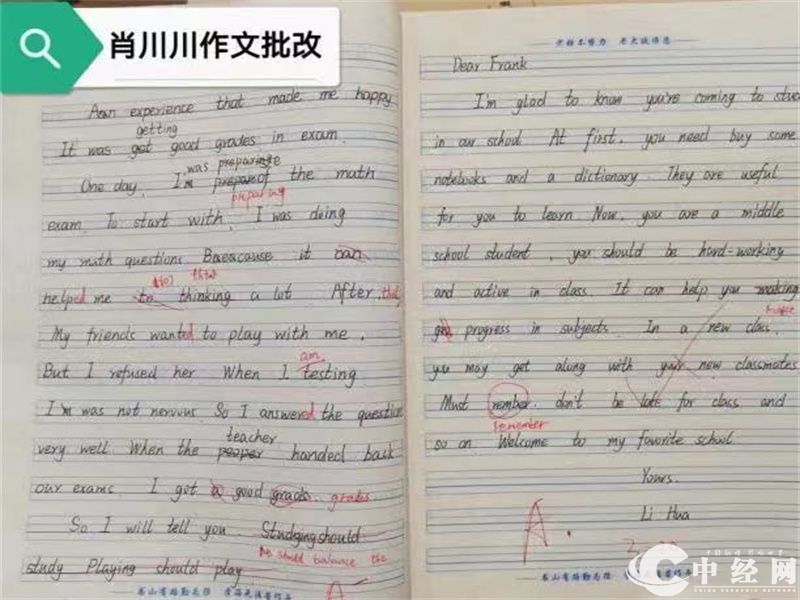 肖川川作文批改
Aan experience that made me happy
getting
It was got good grades in exam.
was preparing
One day, I'm of the math
preparing
exam. To start with, I was doing
my math questions. Beeacause it can
helped me to thinking a lot. After that
My friends wanted to play with me.
am
But I refused her. When I testing
I'm was not nervous. So I answered the question
teacher
very well. When the handed back
our exams. I got a good grads. grades
So I will tell you. Studying should
We should balance the
study Playing should play
A
Dear Frank
I'm glad to know you're coming to stud
in our school. At first, you need buy some
notebooks and a dictionary. They are useful
for you to learn. Now, you are a middle
school student, you should be hard-working
and active in class. It can help you making
make
progress in subjects. In a new class,
you may get along with your new classmates
Must rember, don't be late for class and
remember
so on. Welcome to my favorite school
Yours.
Li Hua
A.
书山有路勤为径
中经网